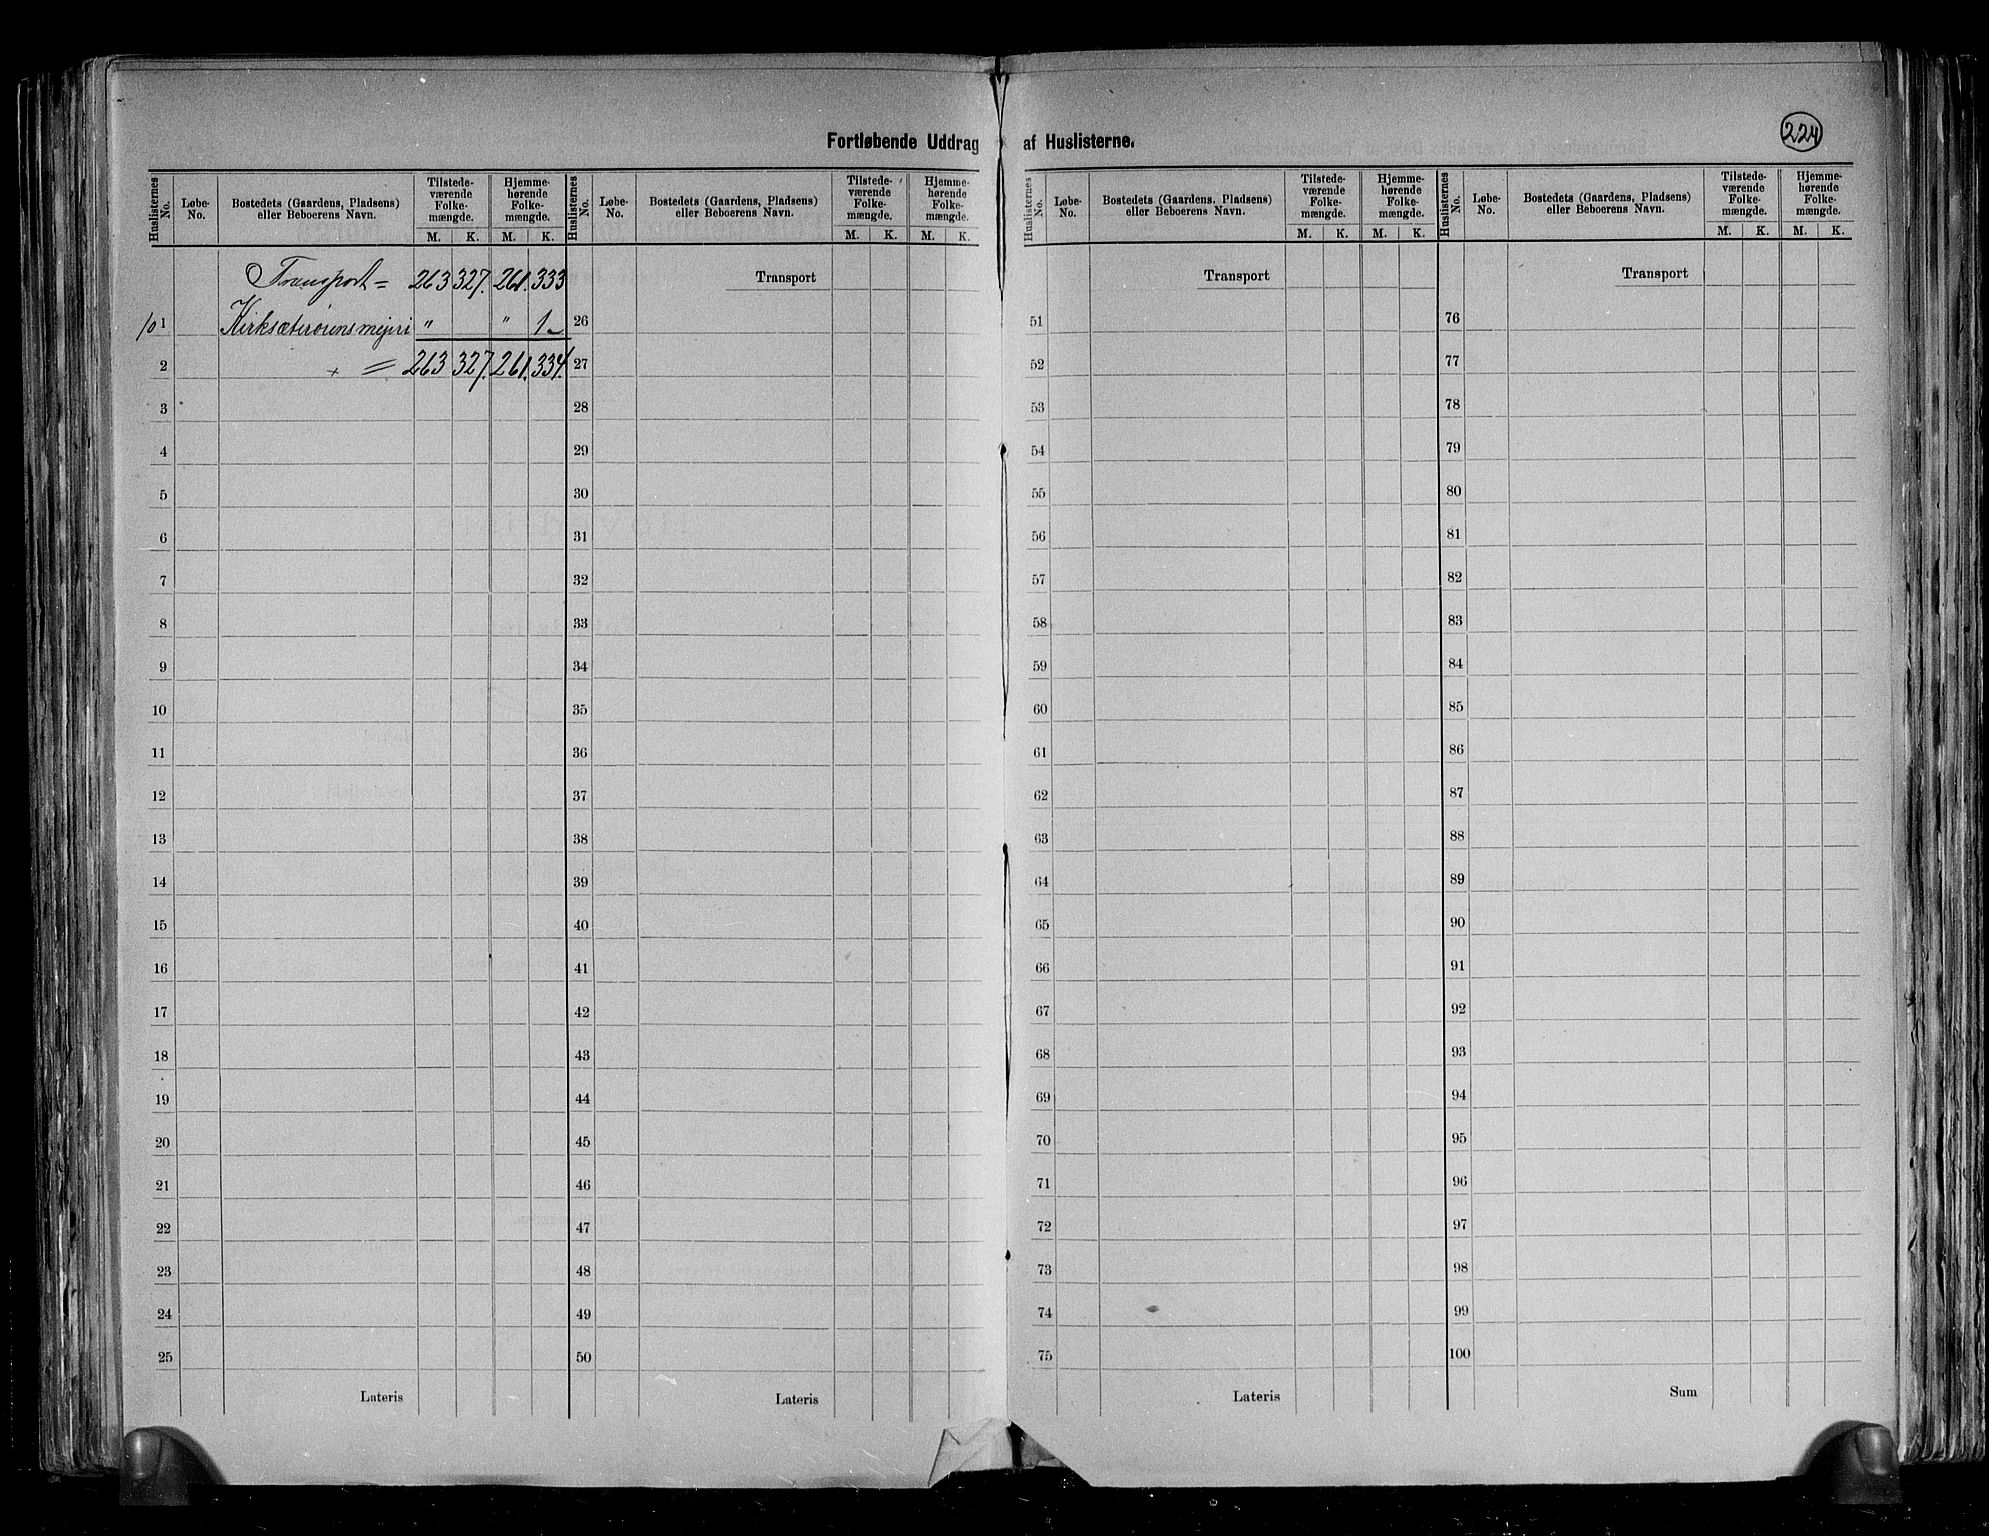 Fortløbende Uddrag af Huslisterne.
224
Huslisternes No.
Løbe-No.
Bostedets (Gaardens, Pladsens) eller Beboerens Navn.
Tilstede-værende Folke-mængde.
Hjemme-hørende Folke-mængde.
M. K. M. K.
Huslisternes No.
Løbe-No.
Bostedets (Gaardens, Pladsens) eller Beboerens Navn.
Tilstede-værende Folke-mængde.
Hjemme-hørende Folke-mængde.
M. K. M. K.
Huslisternes No.
Løbe-No.
Bostedets (Gaardens, Pladsens) eller Beboerens Navn.
Tilstede-værende Folke-mængde.
Hjemme-hørende Folke-mængde.
M. K. M. K.
Huslisternes No.
Løbe-No.
Bostedets (Gaardens, Pladsens) eller Beboerens Navn.
Tilstede-værende Folke-mængde.
Hjemme-hørende Folke-mængde.
M. K. M. K.
Transport = 263 327. 261. 333 Transport Transport Transport
101 Kirksæterøiens mejeri " " 1 26 51 76
2 = 263 327. 261. 334. 27 52 77
3 28 53 78
4 29 54 79
5 30 55 80
6 31 56 81
7 32 57 82
8 33 58 83
9 34 59 84
10 35 60 85
11 36 61 86
12 37 62 87
13 38 63 88
14 39 64 89
15 40 65 90
16 41 66 91
17 42 67 92
18 43 68 93
19 44 69 94
20 45 70 95
21 46 71 96
22 47 72 97
23 48 73 98
24 49 74 99
25 50 75 100
Lateris Lateris Lateris Sum